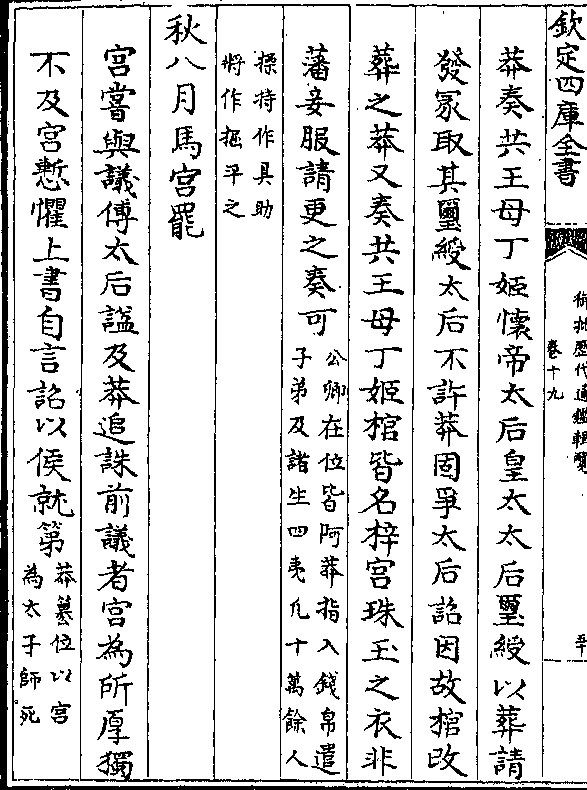 欽定四庫全書
御批歷代通鑑輯覽
卷十九
莽奏共王母丁姬懷帝太后皇太太后璽綬以葬請
發冢取其璽綬太后不許莽固爭太后詔因故棺改
葬之莽又奏共王母丁姬棺皆名梓宮珠玉之衣非
藩妾服請更之奏可
公卿在位皆阿莽指入錢帛遣
子弟及諸生四夷凡十萬餘人
操持作具助
將作掘平之
秋八月馬宮罷
宮嘗與議傅太后諡及莽追誅前議者宮為所厚獨
不及宮慙懼上書自言詔以侯就第
莽篡位以宮
為太子師死